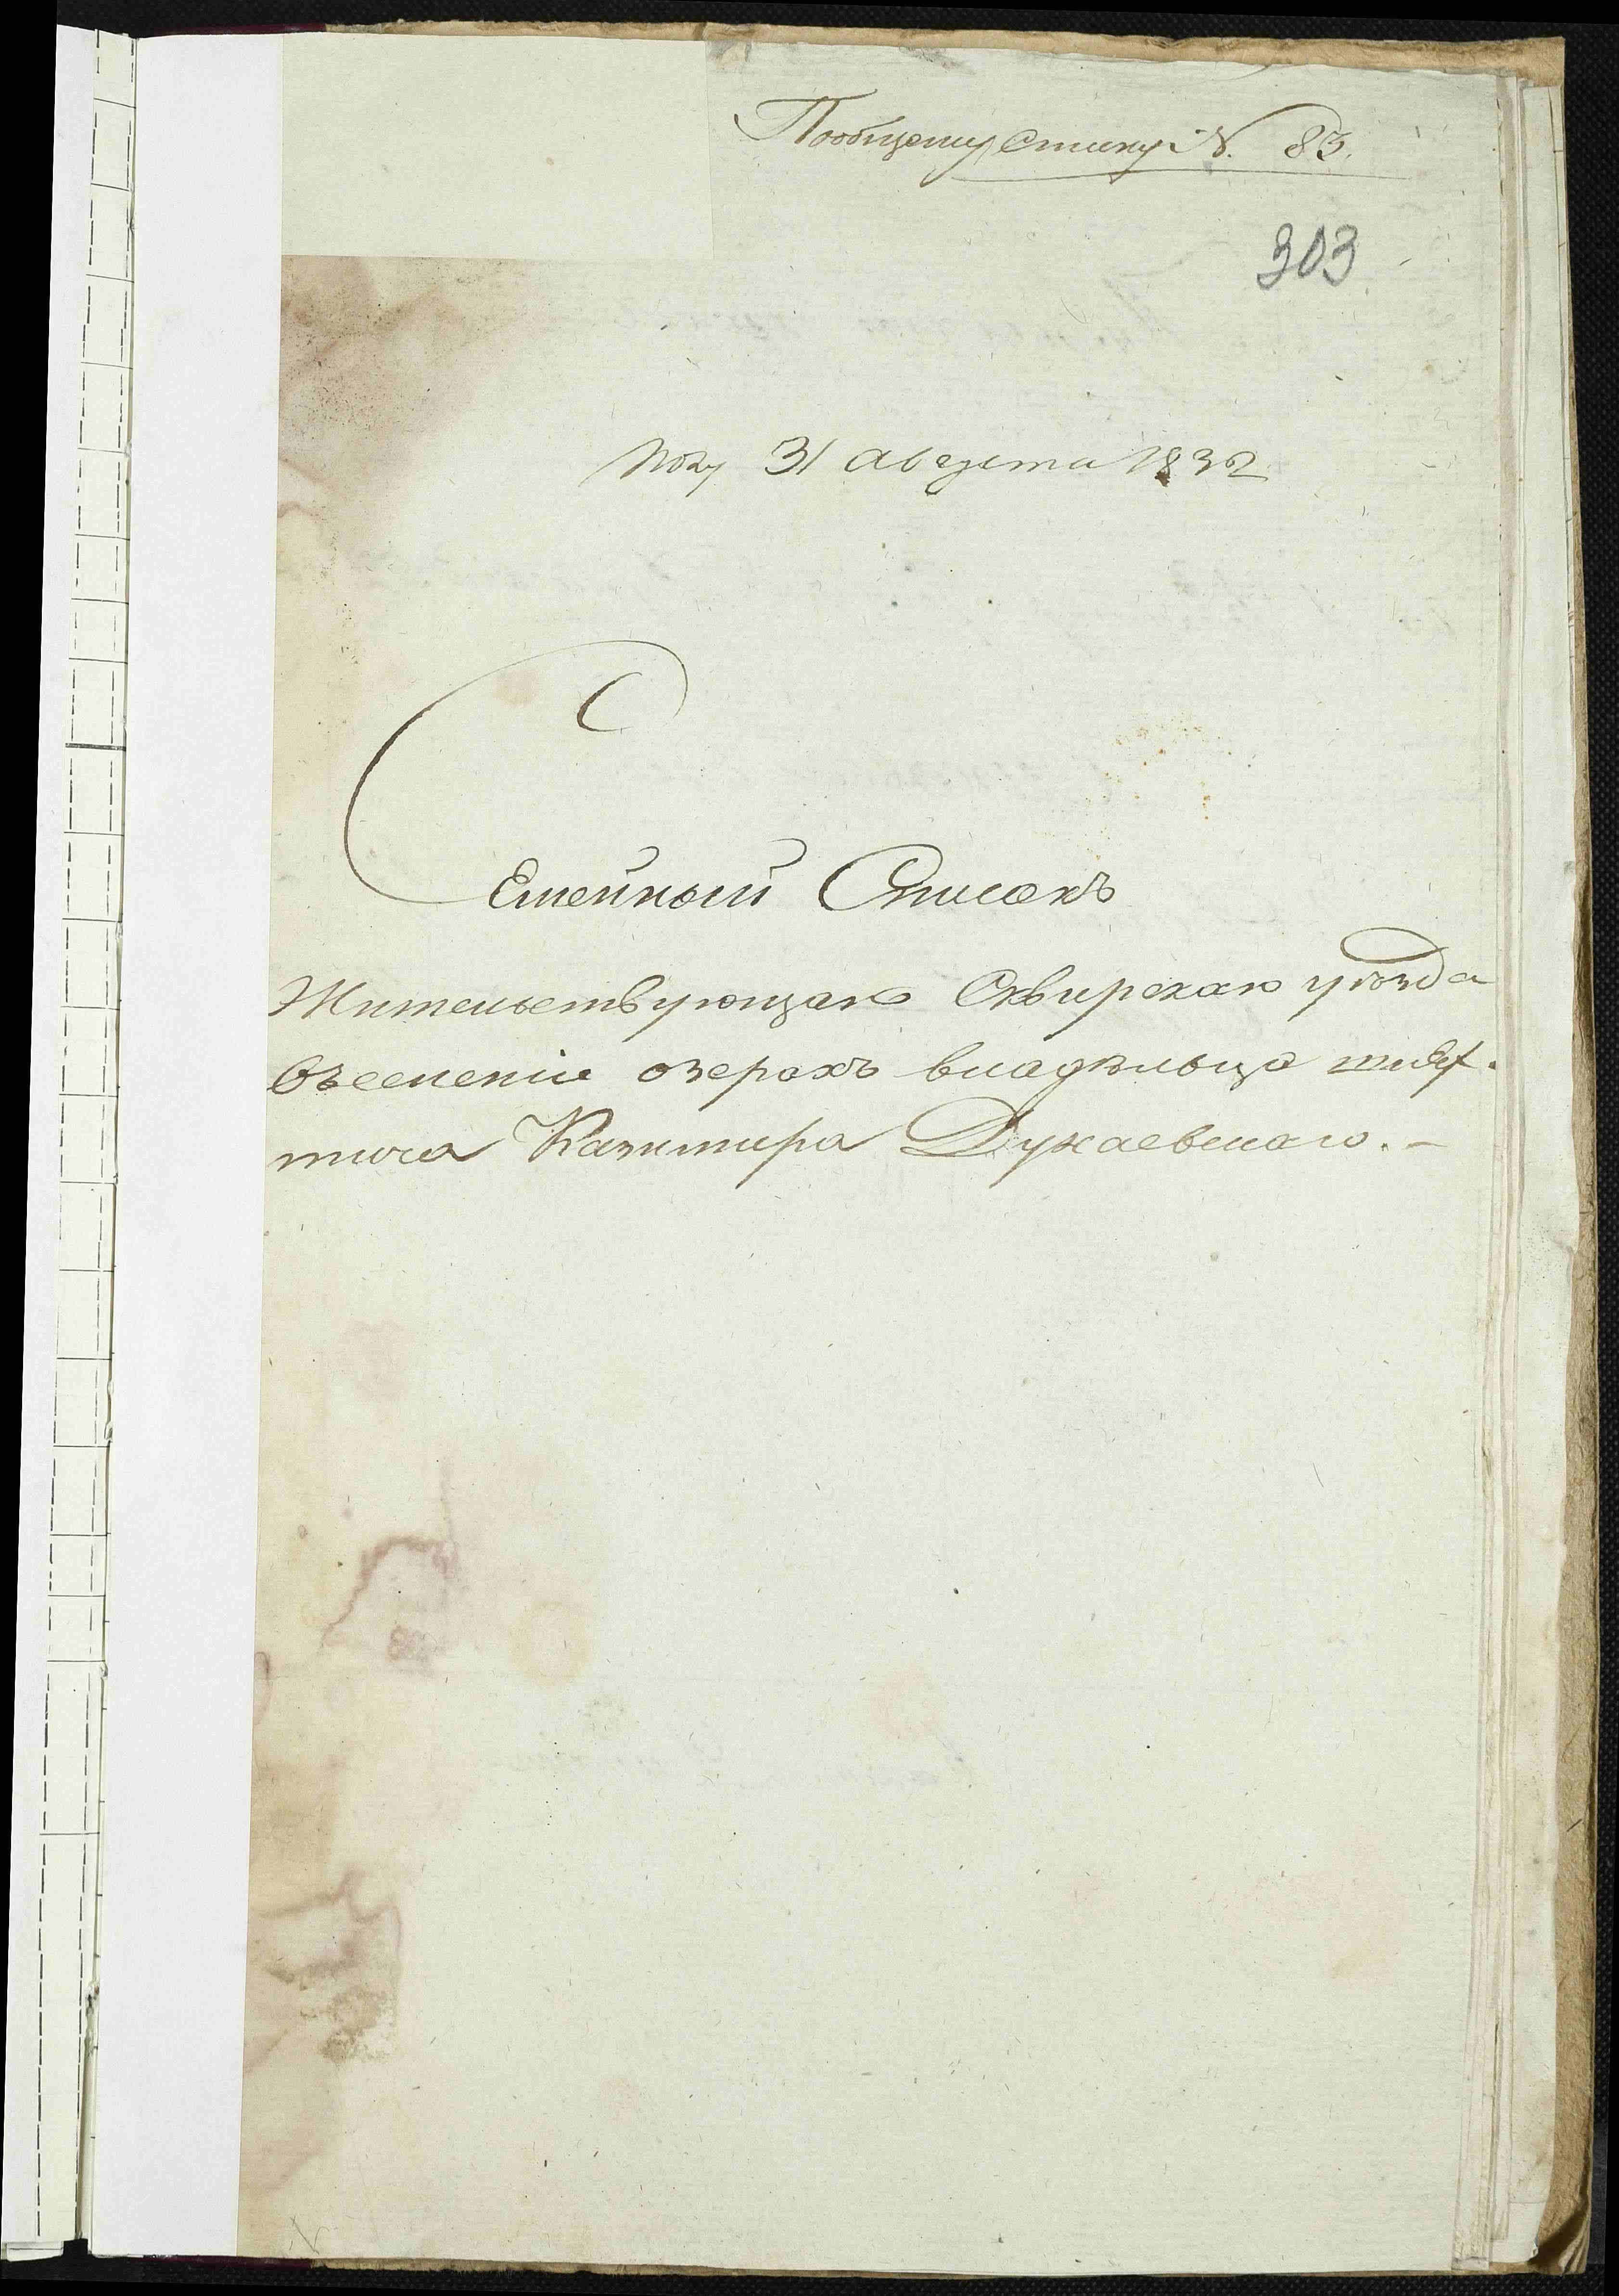 Пообщему списку N. 83.
303
Полу 31 августа 1832
Семейный Списокъ
Жительствующаго Сквирскаго уѣзда
Въселеніи озерахъ владѣльца шлях-
тича Казимира Дукаевскаго. -